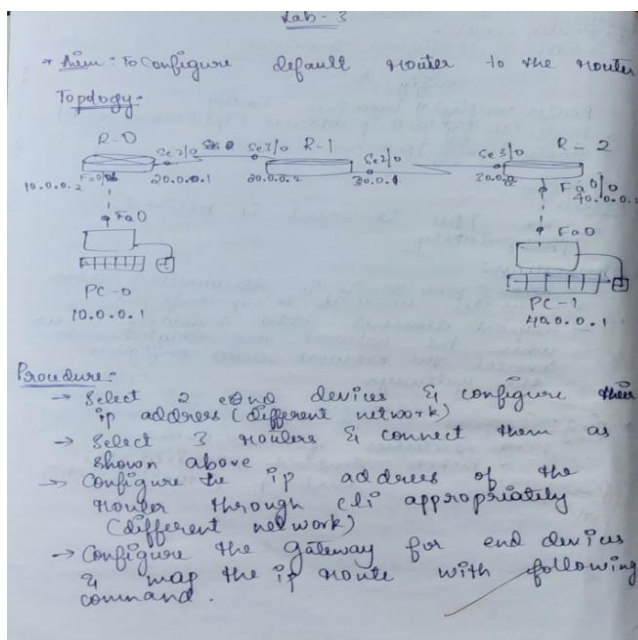 Lab - 3
* Aim : To Configure default router to the router
Topology :-
R-0 Se2/0 Se3/0 R-1 Se2/0 Se3/0 R-2
10.0.0.2 Fa0/0 20.0.0.1 20.0.0.2 30.0.0.1 Fa0/0
Fa0 Fa0
PC-0 PC-1
10.0.0.1 40.0.0.1
Procedure :-
→ Select 2 end devices & configure their
ip address (different network)
→ Select 3 routers & connect them as
shown above
→ Configure the ip address of the
router through cli appropriately
(different network)
→ Configure the Gateway for end devices
& map the ip route with following
command.